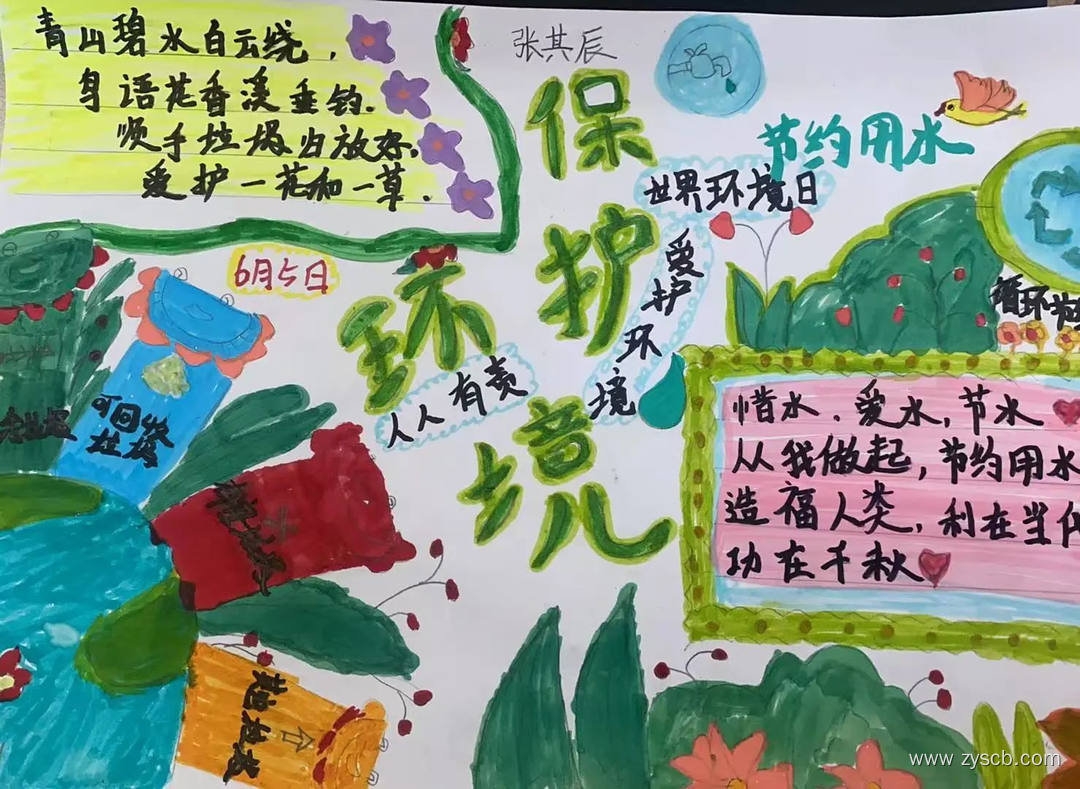 青山碧水白云绕，
鸟语花香溪垂钓．
顺手垃圾归放好，
爱护一花和一草．
6月5日
张其辰
保护环境
节约用水
世界环境日
爱护环境
人人有责
可回收
垃圾
惜水．爱水，节水
从我做起，节约用水
造福人类，利在当代
功在千秋
www.zyscb.com